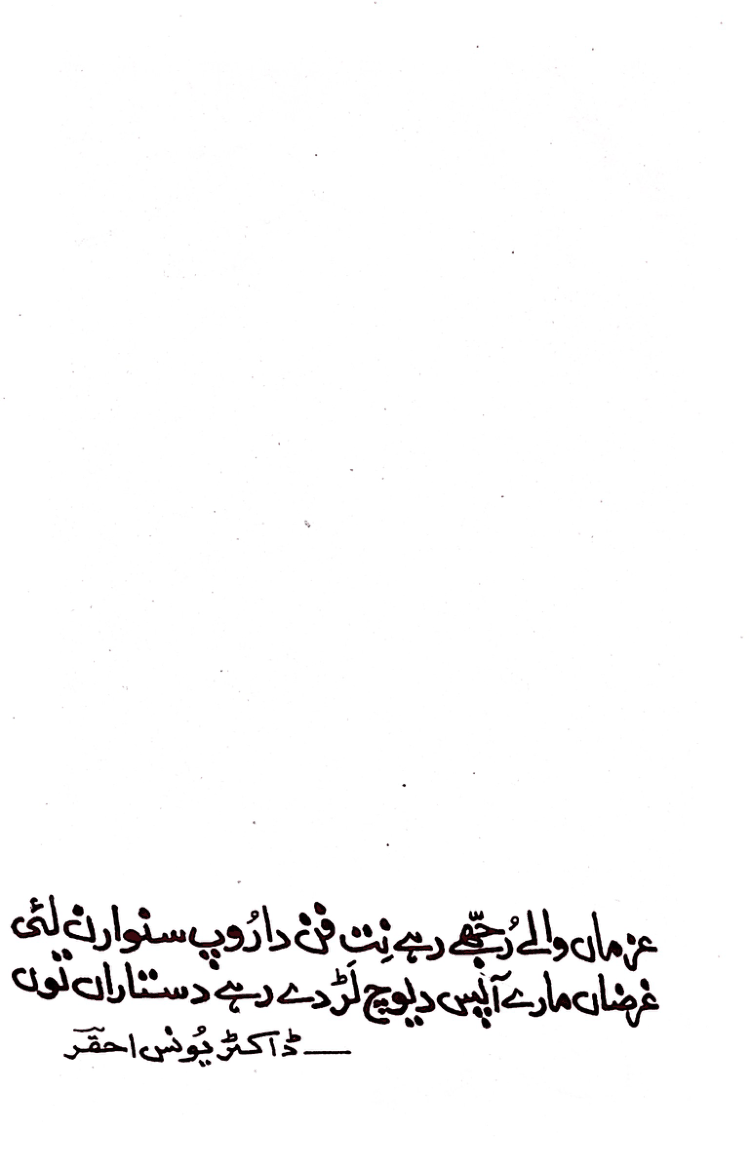 عزماں والے رُجھّے رہے نِت فن دا رُوپ سنوارن لئی
غرضاں مارے آپس دیوچ لَڑدے رہے دستاراں توں
— ڈاکٹر یُونس احقرؔ